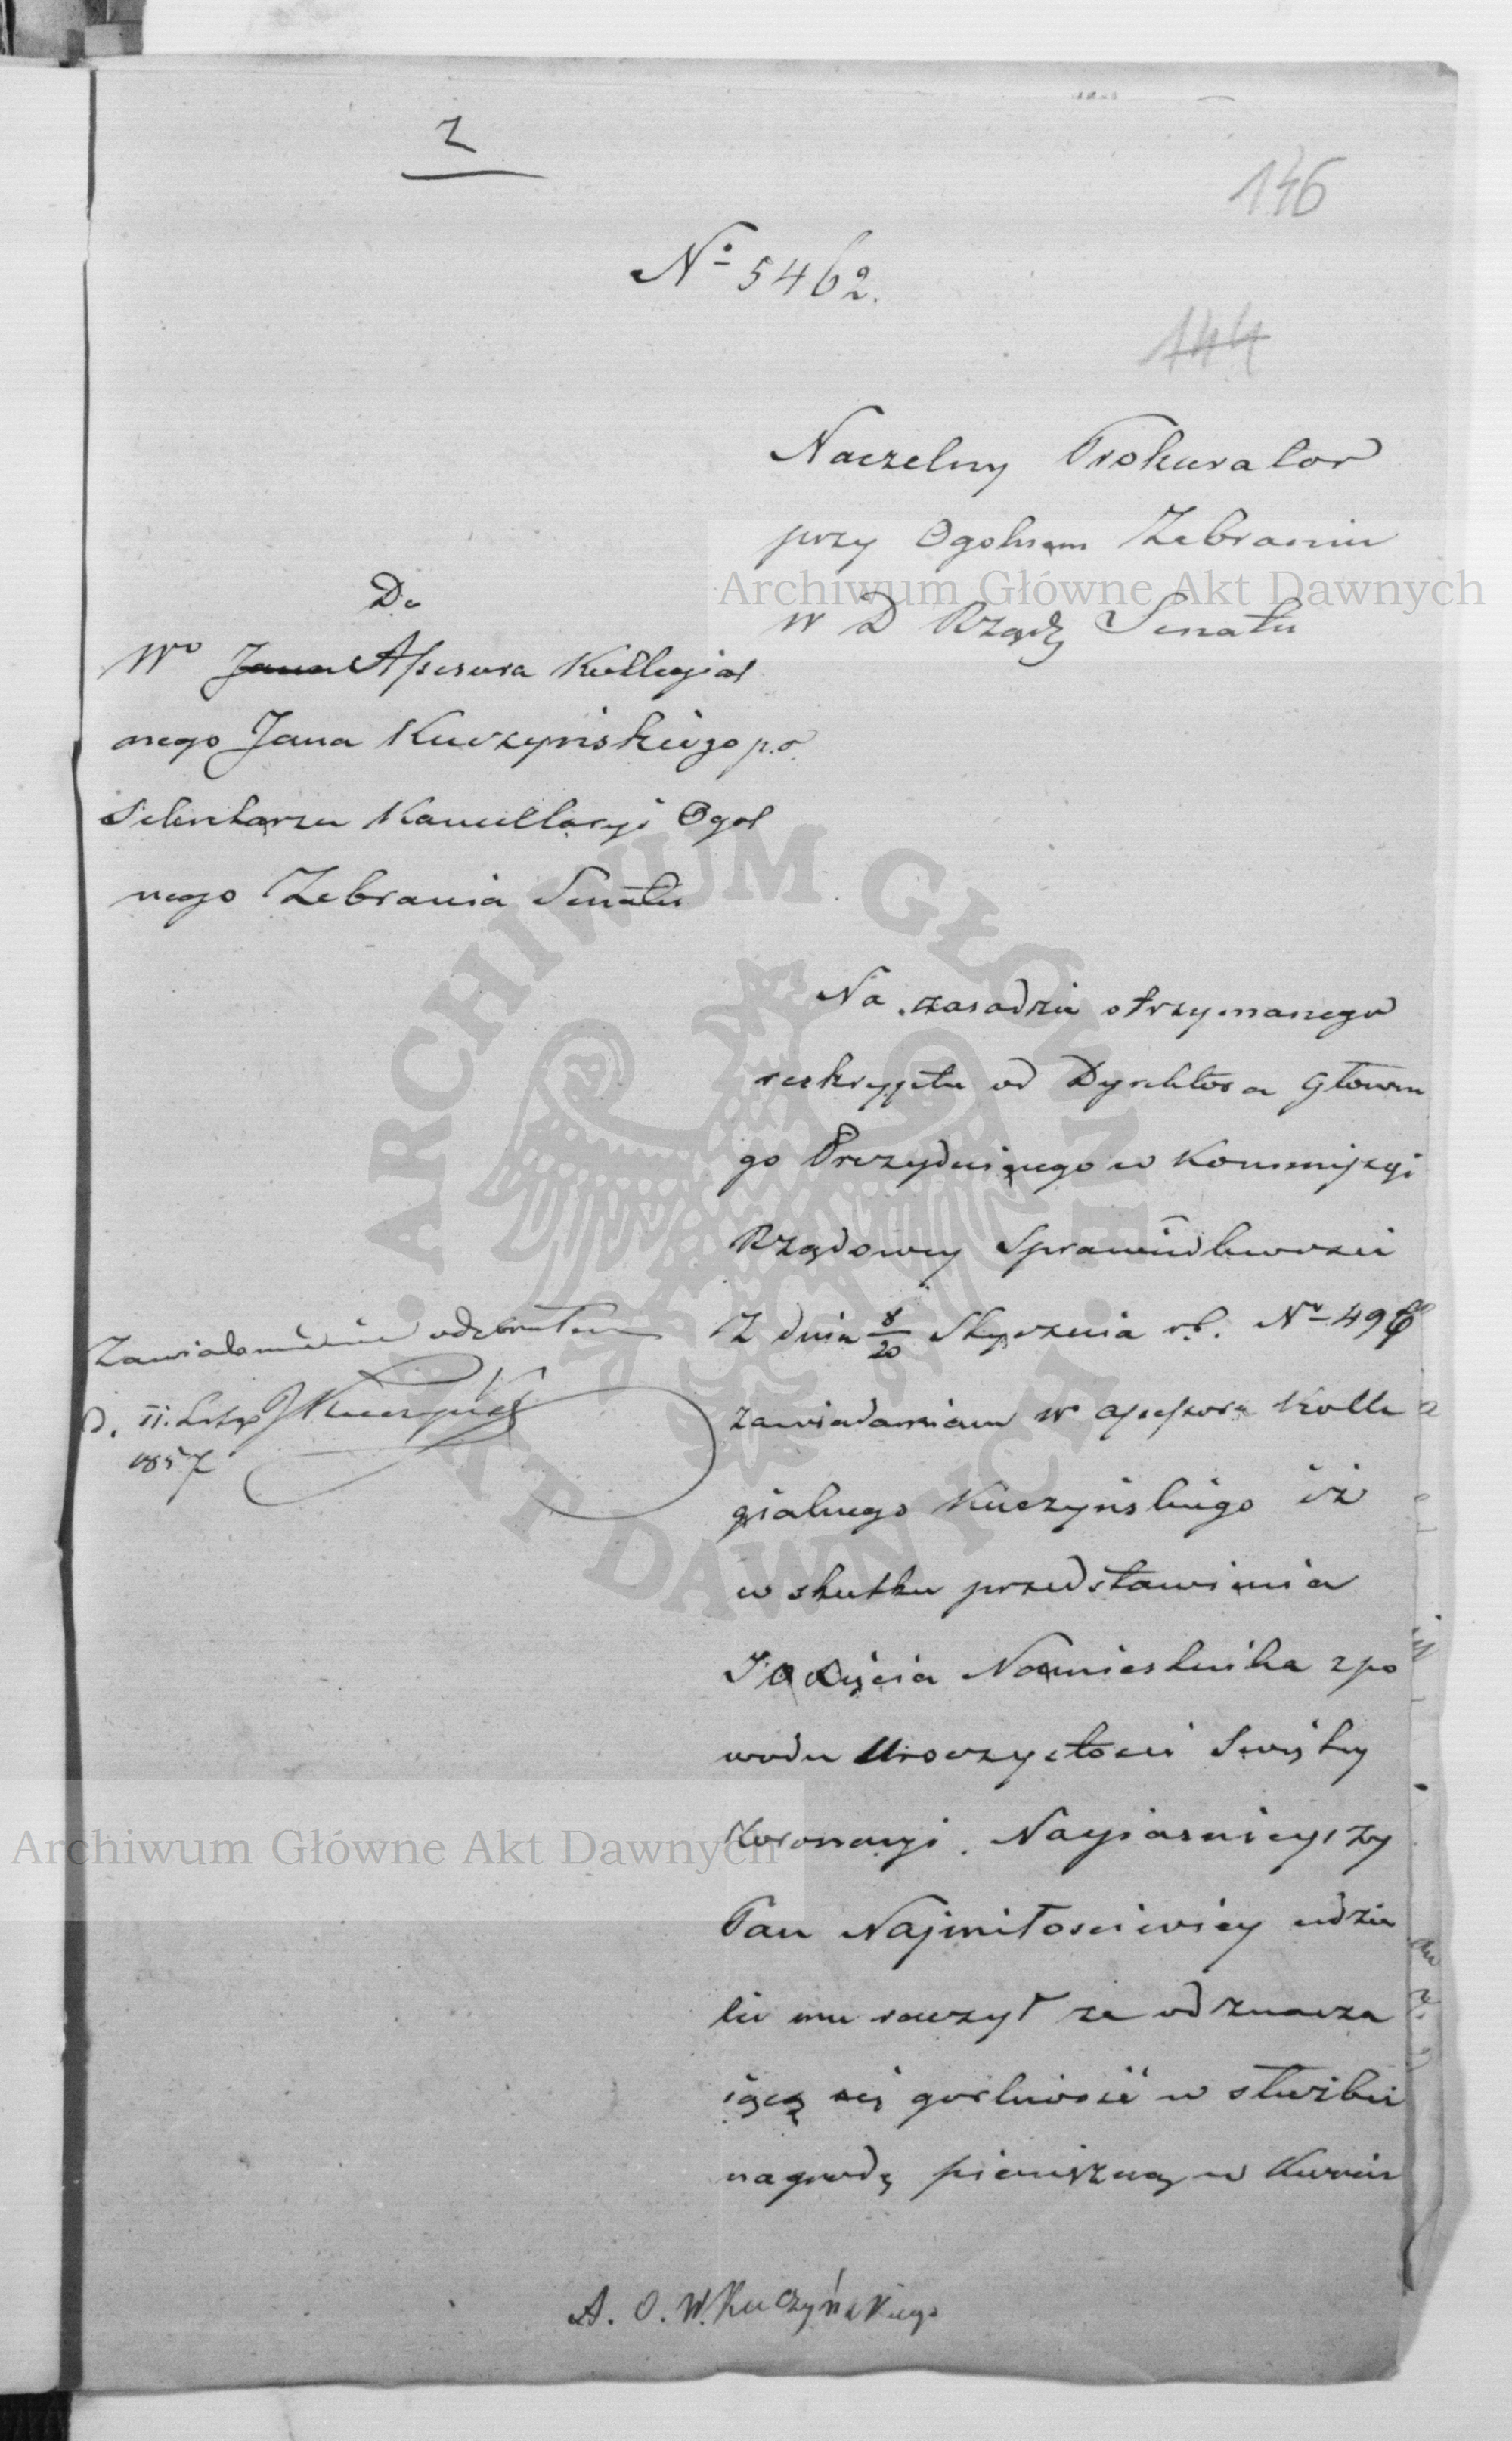 2
146
№ 5462.
144
Naczelny Prokurator
przy Ogolnem Zebraniu
w D Rządz Senatu
Do
Wo Jana Assesora Kollegial
nego Jana Kuczyńskiego p.o.
Sekretarza Kancellaryi Ogol
nego Zebrania Senatu
Na zasadzie otrzymanego
reskryptu od Dyrektora Główne
go Prezydującego w Kommissyi
Rządowey Sprawiedliwosci
Z dnia 8/20 Stycznia rb. No 496
zawiadamiam Wo assessora Kolle
gialnego Kuczyńskiego iż
w skutku przedstawienia
JO Xięcia Namiestnika z po
wodu Uroczystosci Swiętey
Koronacyi Nayiasnieyszy
Pan Najmiłosciwiey udzie
lić mu raczył za odznacza
iącą się gorliwość w służbie
nagrodę pieniężną w kwocie
Zawiadomienie odebrałem
D. 11. Lutego JKuczyński
1857
A. O. W. Kuczyńskiego
Archiwum Główne Akt Dawnych
Archiwum Główne Akt Dawnych
ARCHIWUM GŁÓWNE AKT DAWNYCH